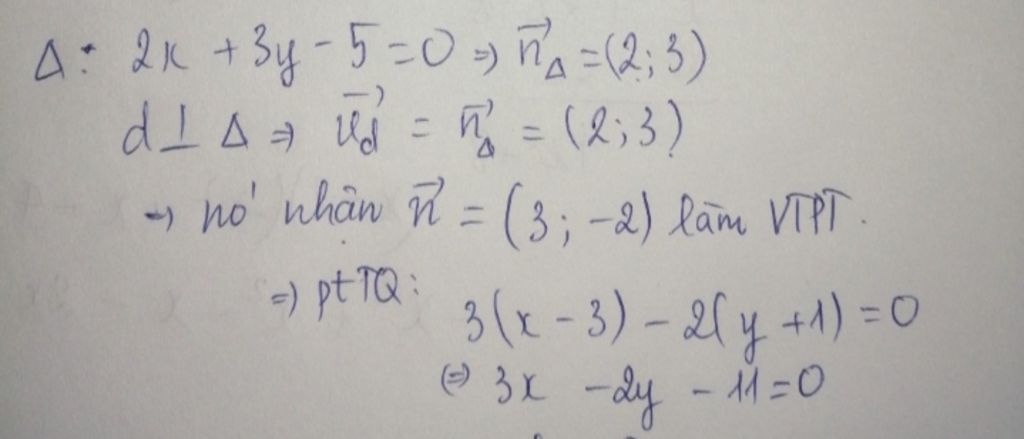 Δ: 2x + 3y - 5 = 0 ⇒ n⃗_Δ = (2; 3)
d ⊥ Δ ⇒ u⃗_d = n⃗_Δ = (2; 3)
→ nó nhận n⃗ = (3; -2) làm VTPT.
⇒ ptTQ:
3(x - 3) - 2(y + 1) = 0
⇔ 3x - 2y - 11 = 0